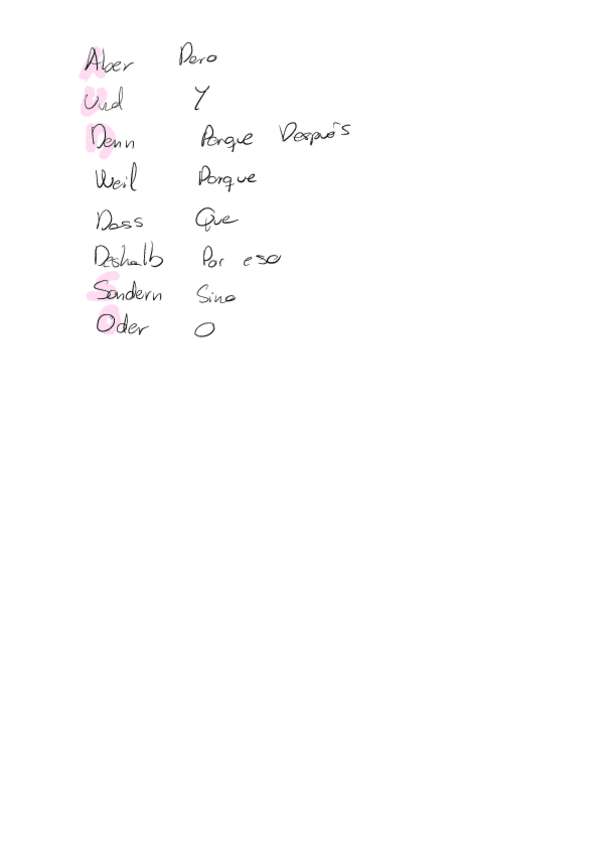 Aber Pero
Und Y
Denn Porque Después
Weil Porque
Dass Que
Deshalb Por eso
Sondern Sino
Oder O